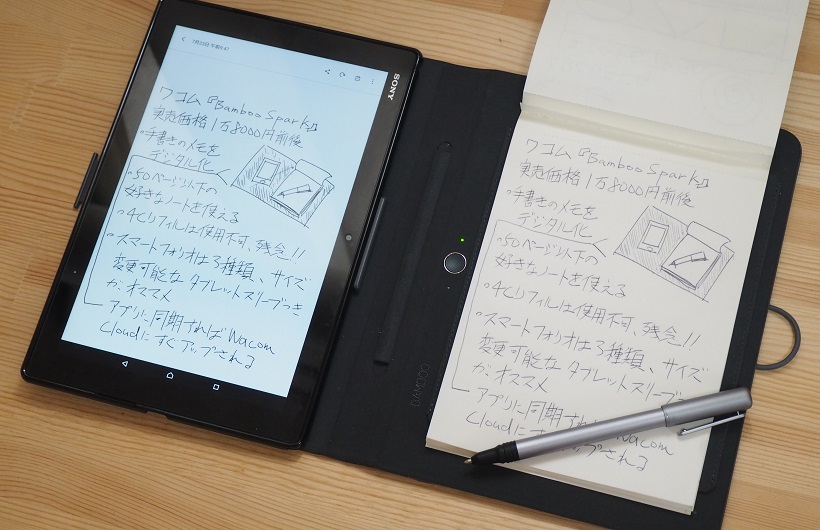 SONY
7月23日 午前9:47
ワコム『Bamboo Spark』
実売価格1万8000円前後
・手書きのメモを
デジタル化
・50ページ以下の
好きなノートを使える
・4Cリフィルは使用不可、残念!!
・スマートフォリオは3種類、サイズ
変更可能なタブレットスリーブつき
がオススメ
アプリに同期すればWacom
Cloudにすぐアップされる
BAMBOO
ワコム『Bamboo Spark』
実売価格1万8000円前後
・手書きのメモを
デジタル化
・50ページ以下の
好きなノートを使える
・4Cリフィルは使用不可、残念!!
・スマートフォリオは3種類、サイズ
変更可能なタブレットスリーブ
がオススメ
アプリに同期すればWacom
Cloudにすアップされる